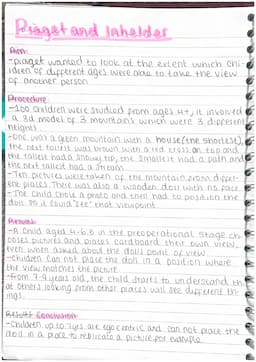 Piaget and Inhelder
Aim:
-piaget wanted to look at the extent which chi-
ldren of different ages were able to take the view
of another person
Procedure
-100 children were studied from ages 4+, it involved
a 3d model of 3 mountains which were 3 different
heights.
-one was a green mountain with a house(the shortest),
the next tallest was brown with a red cross on top and
the tallest had a snowy top, the smallest had a path and
the next tallest had a stream.
-Ten pictures were taken of the mountain from differ-
ent places. There was also a wooden doll with no face
-The child chose a photo and then had to position the
doll so it could "see" that viewpoint.
Results
-A child aged 4-6.6 in the preoperational stage ch-
oses pictures and places cardboard their own view,
even when asked about the dolls point of view
-children can not place the doll in a position where
the view matches the picture
-From 7-9 years old, the child starts to understand th
at others looking from other places will see different th-
ings.
Results Conclusion
-Children up to 7yrs are egocentric and can not place the
doll in a place to replicate a picture for example